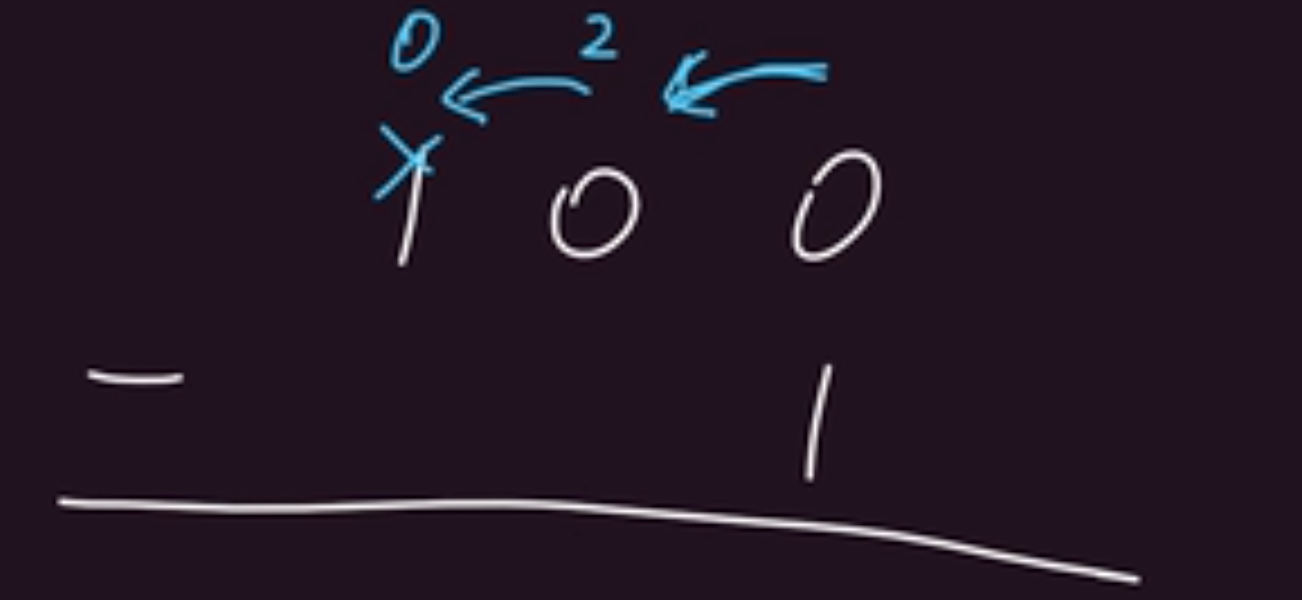 0 2
1 0 0
- 1